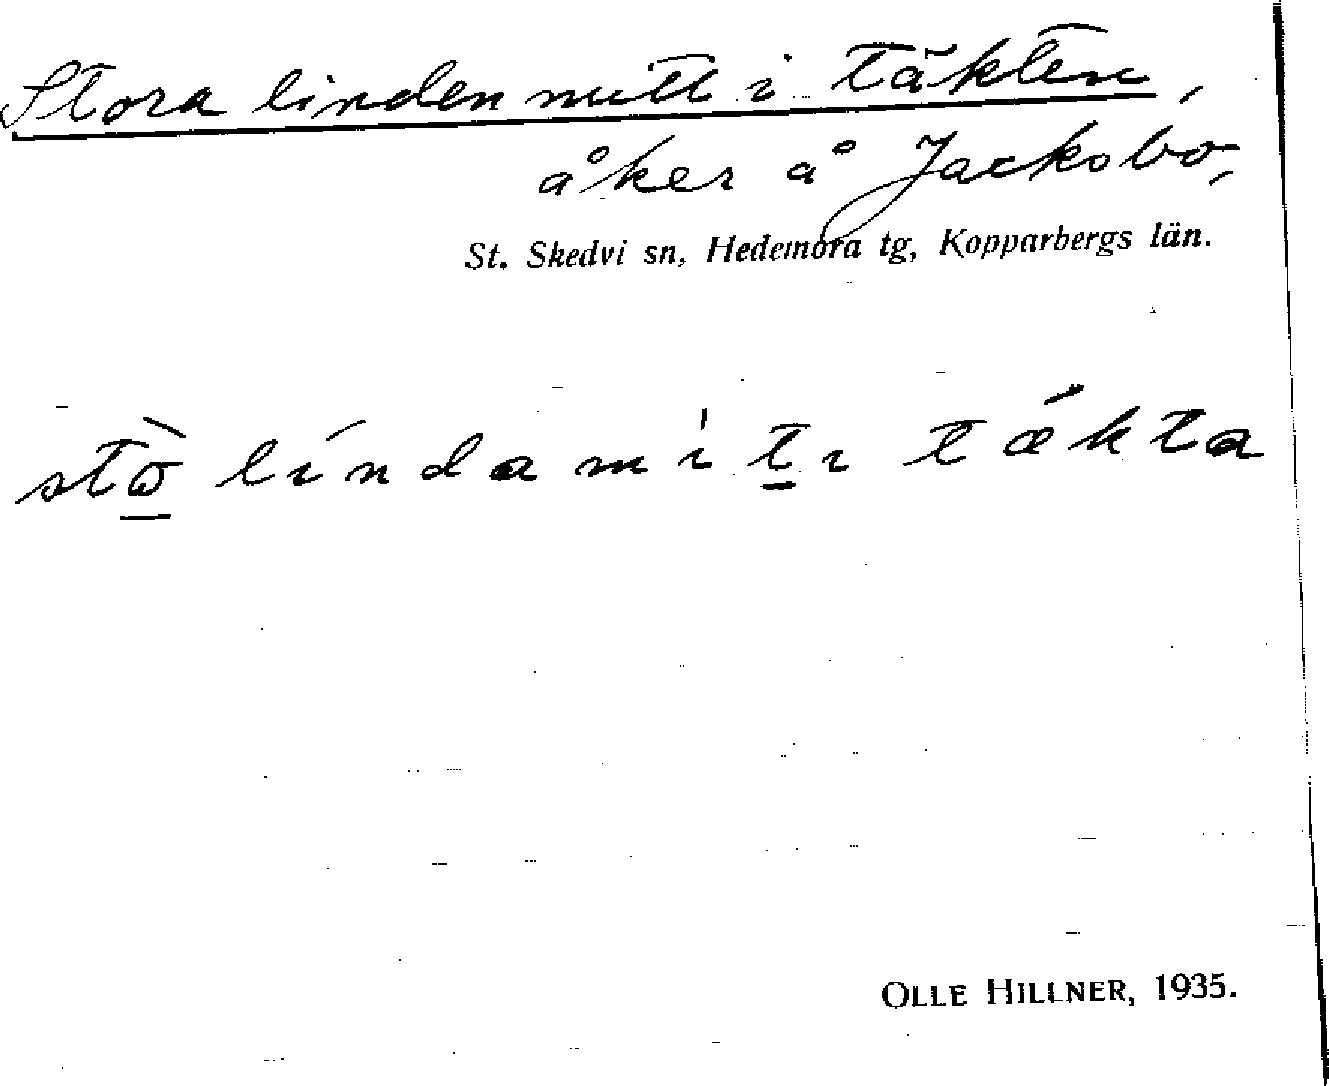 Stora linden mitt i täkten,
åker å Jacksbo,
St. Skedvi sn, Hedemora tg, Kopparbergs län.
stꞷ̀ línda mı̍t̠ı tǽkta
OLLE HILLNER, 1935.